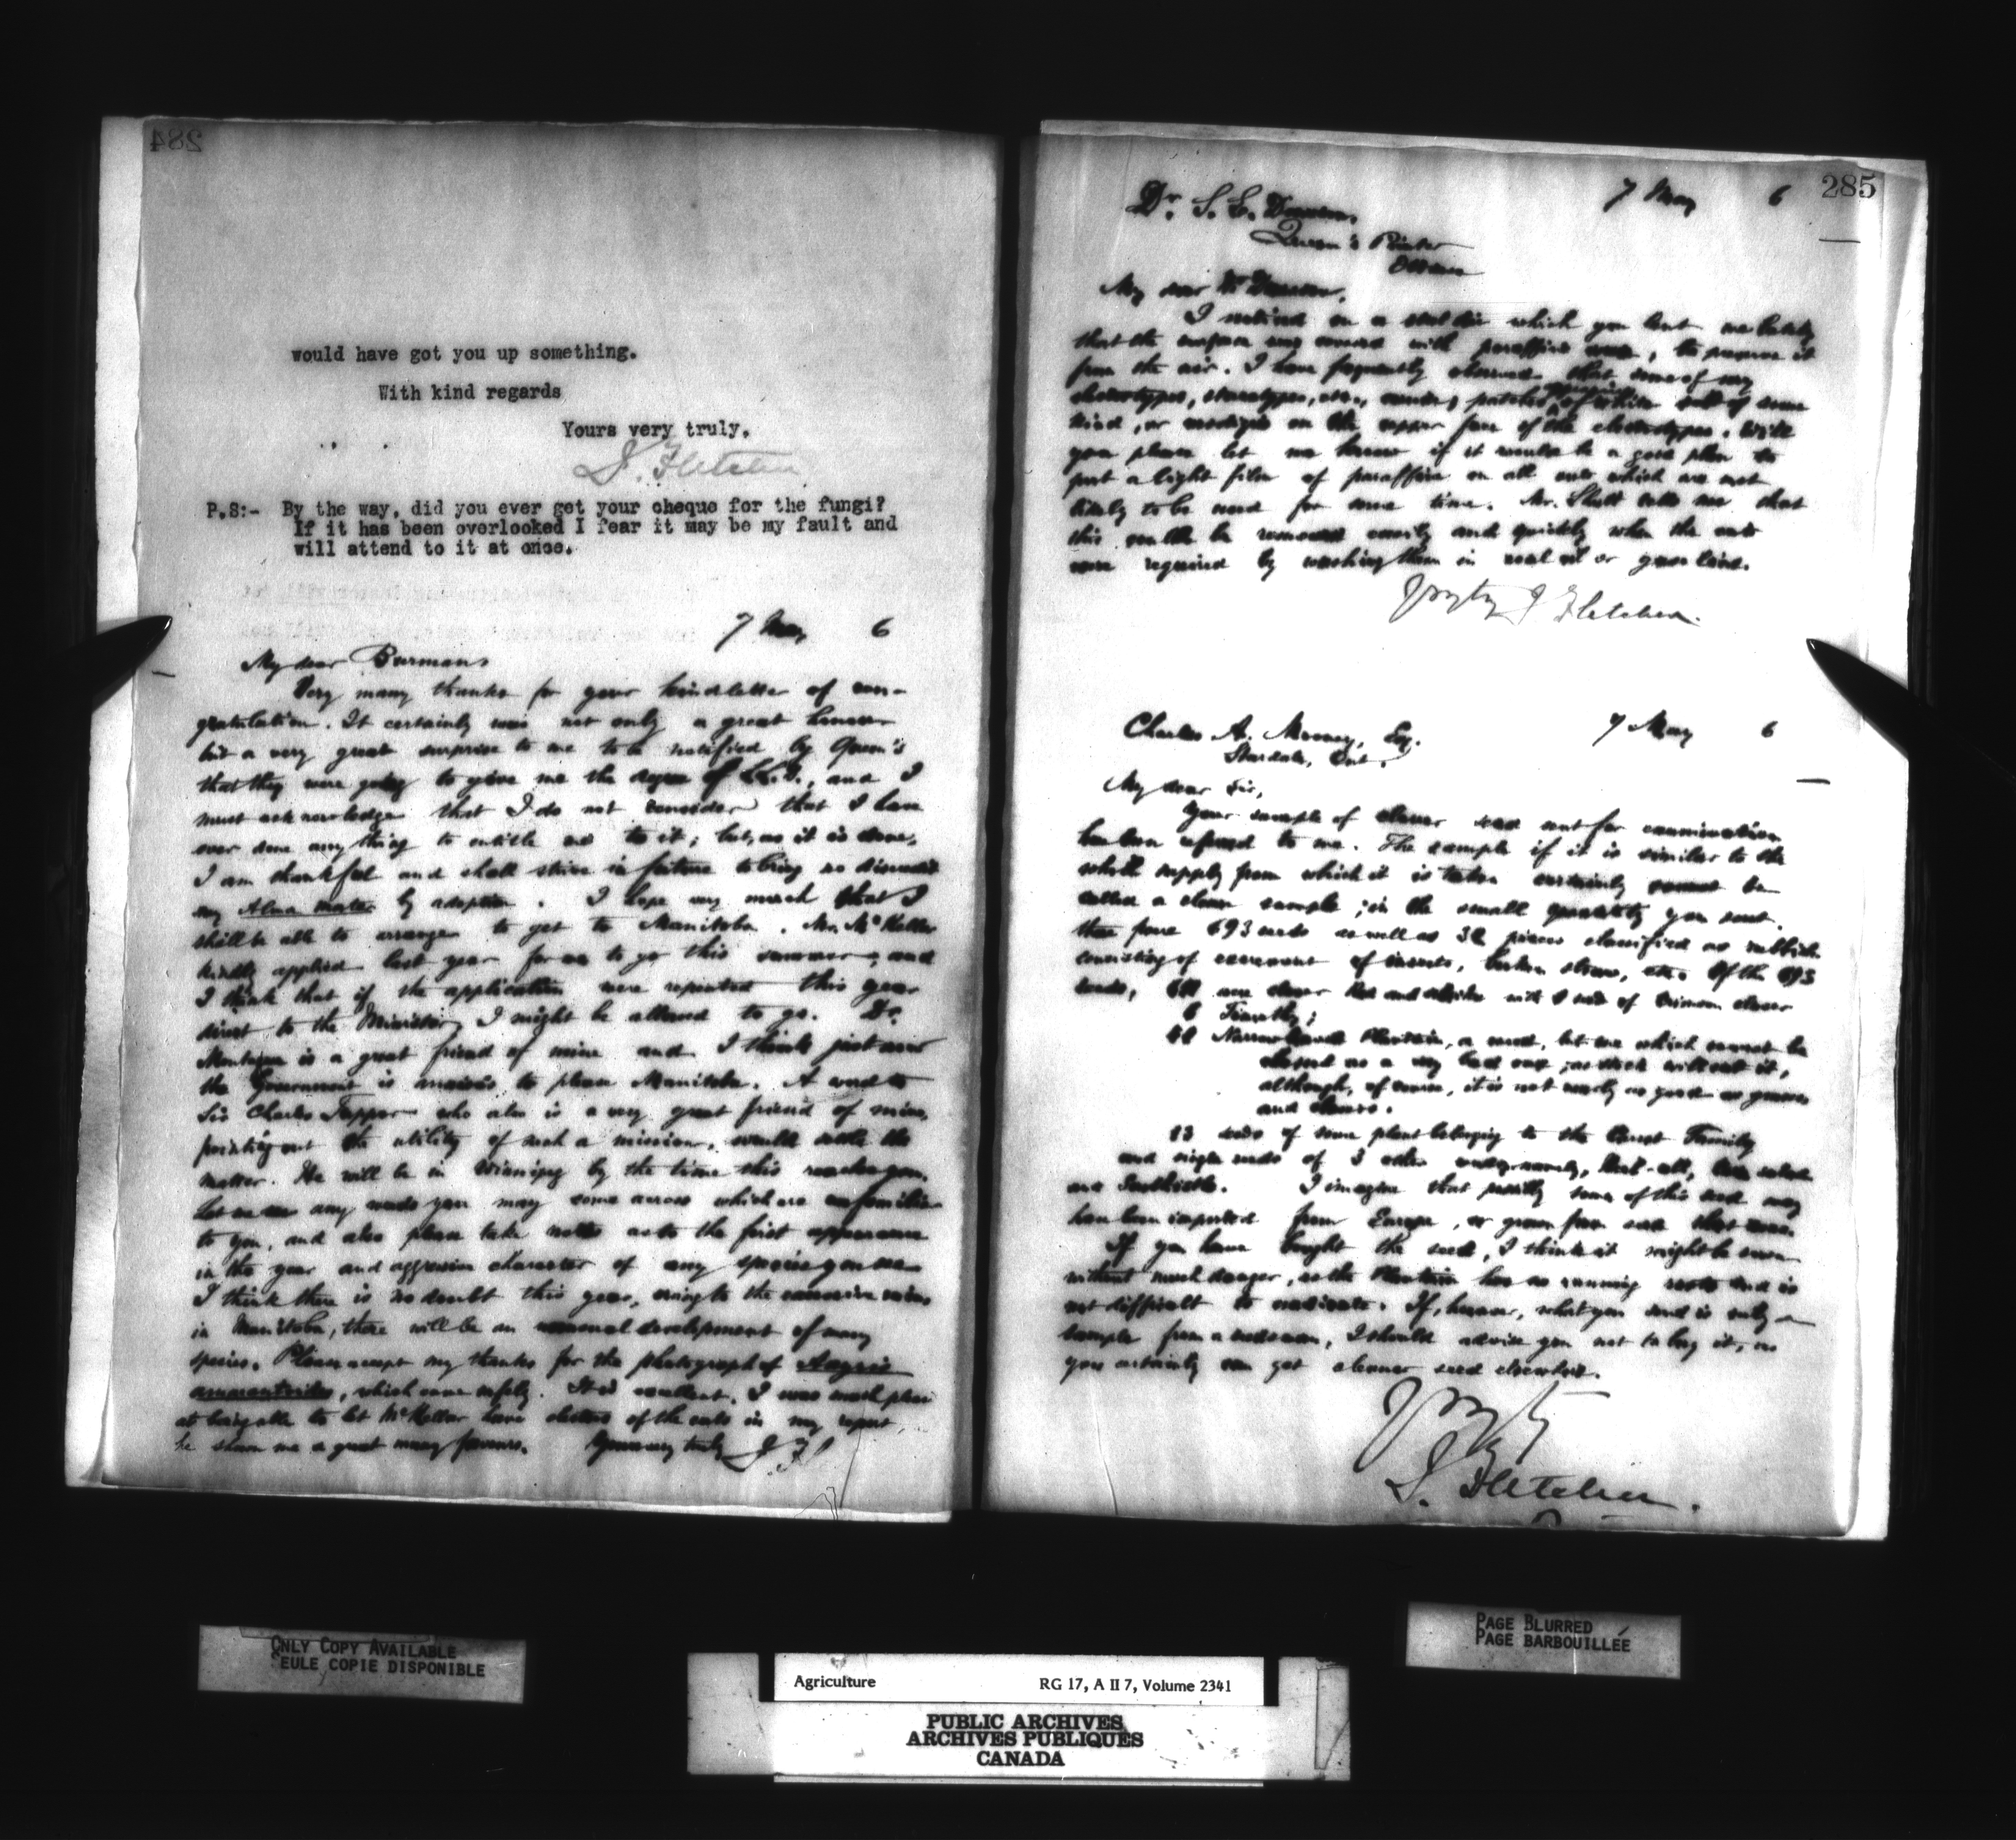 284
would have got you up something.
With kind regards
Yours very truly,
J. Fletcher
P.S:- By the way, did you ever get your cheque for the fungi?
If it has been overlooked I fear it may be my fault and
will attend to it at once.
7 May 6
My dear Burman
Very many thanks for your kind letter of con-
gratulation. It certainly was not only a great honour
but a very great surprise to me to be notified by Queen's
that they were going to give me the degree of LL.D., and I
must acknowledge that I do not consider that I have
ever done anything to entitle me to it; but, as it is done,
I am thankful and shall strive in future to bring no discredit
my Alma mater by adoption. I hope very much that I
shall be able to arrange to get to Manitoba. Mr. McKellar
kindly applied last year for me to go this summer, and
I think that if the application were repeated this year
direct to the Minister, I might be allowed to go. Dr.
Montague is a great friend of mine and I think just now
the Government is anxious to please Manitoba. A word to
Sir Charles Tupper who also is a very great friend of mine,
pointing out the utility of such a mission, would settle the
matter. He will be in Winnipeg by the time this reaches you.
Let me see any weeds you may come across which are unfamiliar
to you, and also please take notes as to the first appearance
in the year and aggressive character of any species you see
I think there is no doubt this year, owing to the excessive rains
in Manitoba, there will be an unusual development of many
species. Please accept my thanks for the photograph of
, which came safely. It is excellent. I was much pleased
at being able to let McKellar have electros of the cuts in my report
he shown me a great many favours. Yours very truly J. F.
285
7 May 6
Dr. S. E. Dawson,
Queen's Printer
Ottawa
My dear Dr Dawson,
I noticed on a steel die which you lent me lately
that the surface was covered with paraffine wax, to preserve it
from the air. I have frequently observed that some of my
electrotypes, stereotypes, etc., patches of white salt of some
kind, or on the upper face of the electrotypes. Will
you please let me know if it would be a good plan to
put a light film of paraffine on all cuts which are not
likely to be used for some time. Mr. Shutt tells me that
this could be removed easily and quickly when the cuts
were required by washing them in coal oil or gasoline.
J Fletcher.
7 May 6
Charles A. Esq.
Ont.
My dear Sir,
Your sample of clover seed sent for examination
has been referred to me. The sample if it is similar to the
whole supply from which it is taken certainly cannot be
called a clean sample; in the small quantity you sent.
there were 693 seeds as well as 32 pieces classified as rubbish
consisting of excrement of insects, broken straw, etc. Of the 693
seeds, are clover Red and Alsike with seed of Crimson clover
6 Timothy;
Narrow leaved Plantain, a weed, but one which cannot be
classed as a very bad one, as stock will eat it,
although, of course, it is not nearly as good as grasses
and clovers.
13 seeds of some plant belonging to the Carrot Family
and single seeds of 3 other weeds, namely,
and I imagine that possibly some of this seed may
have been imported from Europe, or grown from seed that was.
If you have bought the seed, I think it might be sown
without much danger, as the Plantain has no running roots and is
not difficult to eradicate. If, however, what you send is only a
sample from a seedsman, I should advise you not to buy it, as
you certainly can get cleaner seed elsewhere.
J. Fletcher.
ONLY COPY AVAILABLE
SEULE COPIE DISPONIBLE
PAGE BLURRED
PAGE BARBOUILLÉE
Agriculture RG 17, A II 7, Volume 2341
PUBLIC ARCHIVES
ARCHIVES PUBLIQUES
CANADA